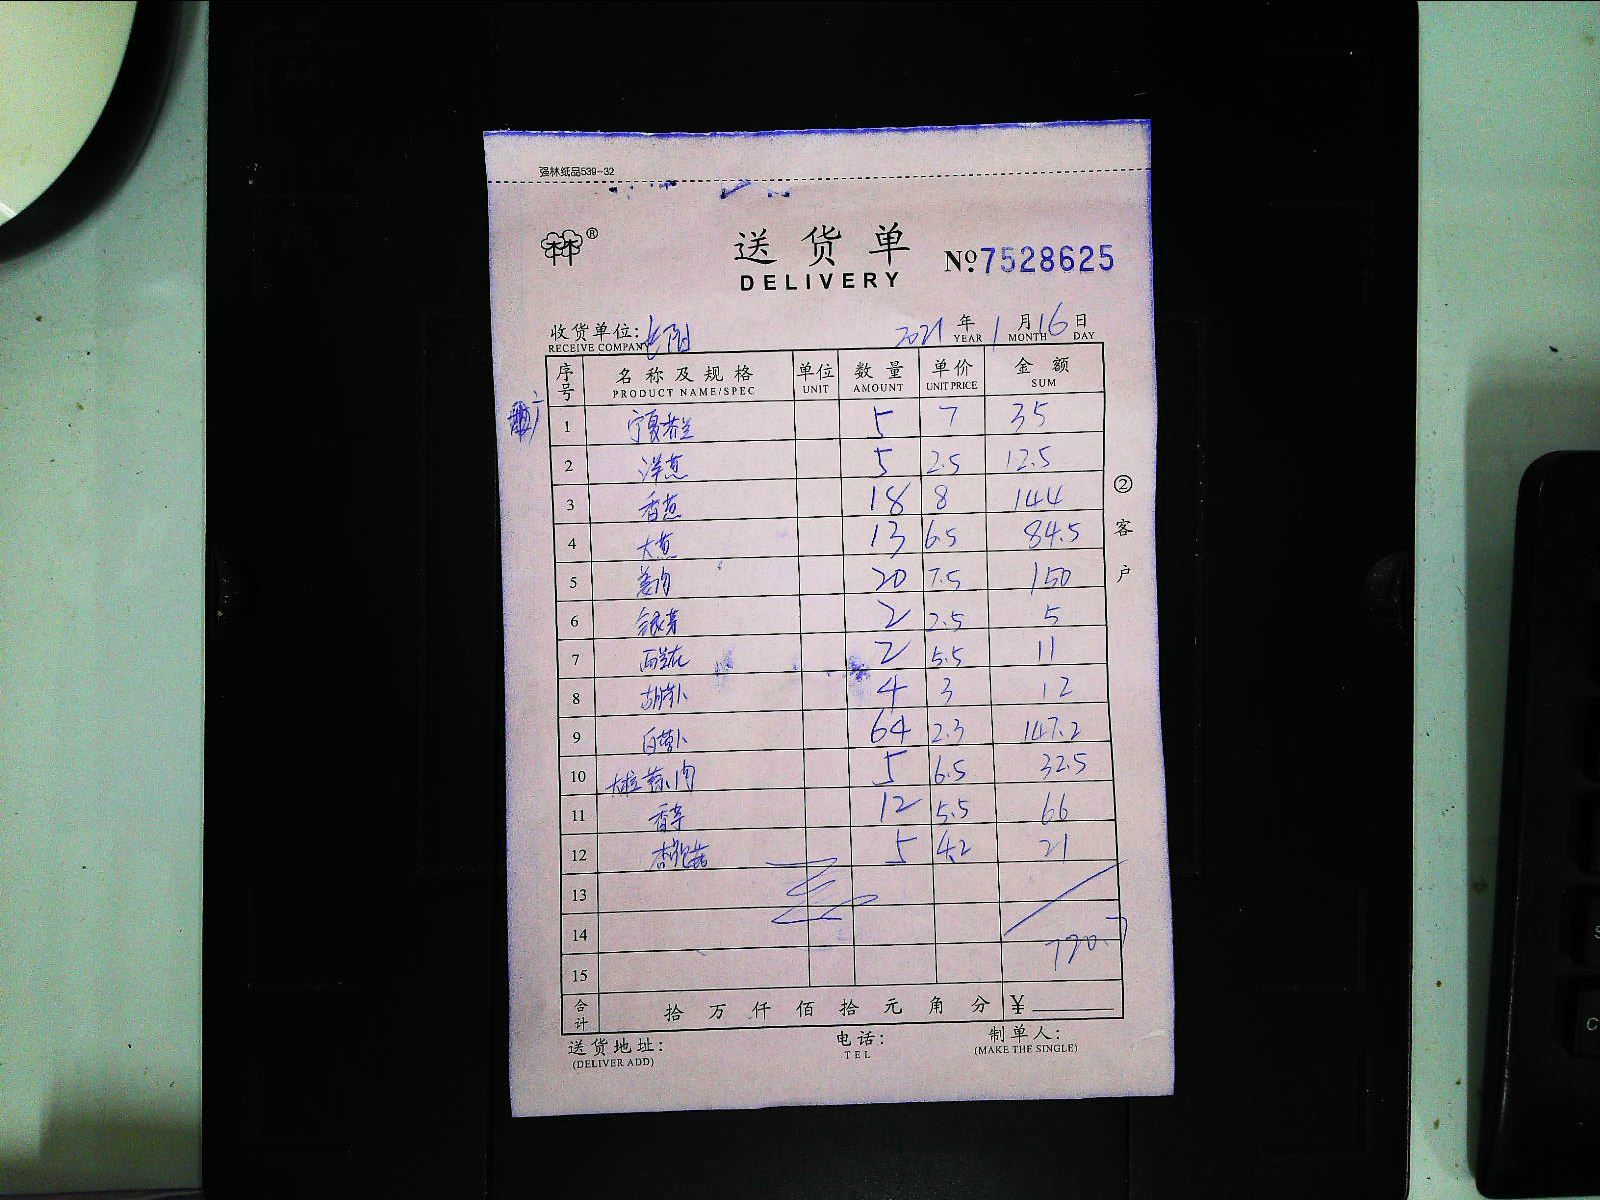 强林纸品539-32
林®
送货单 No.7528625
DELIVERY
收货单位: 2021 年 1 月 16 日
RECEIVE COMPANY YEAR MONTH DAY
序号 名称及规格 单位 数量 单价 金额
PRODUCT NAME/SPEC UNIT AMOUNT UNIT PRICE SUM
1 宁夏芥兰 5 7 35
2 洋葱 5 2.5 12.5
3 香葱 18 8 144
4 大葱 13 6.5 84.5
5 姜肉 20 7.5 150
6 银芽 2 2.5 5
7 西兰花 2 5.5 11
8 胡萝卜 4 3 12
9 白萝卜 64 2.3 147.2
10 大粒蒜肉 5 6.5 32.5
11 香芹 12 5.5 66
12 杏鲍菇 5 4.2 21
13
14
720.7
15
合计 拾 万 仟 佰 拾 元 角 分 ¥
送货地址: 电话: 制单人:
(DELIVER ADD) TEL (MAKE THE SINGLE)
②客户